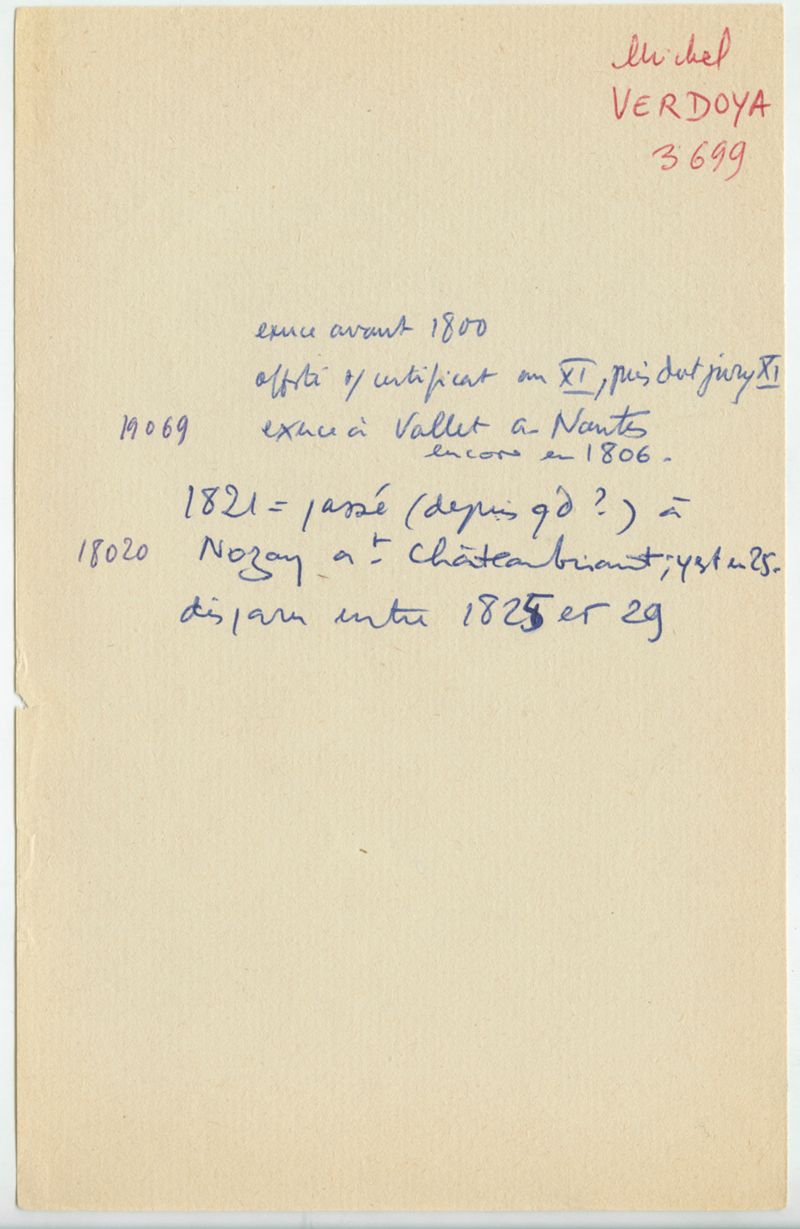 Michel
VERDOYA
3699
exerce avant 1800
certificat an XI, puis jury XI
19069 exerce à Vallet a- Nantes
encore en 1806.
1821 = passé (depuis qd ?) à
18020 Nozay at Châteaubriant; y est en 25.
disparu entre 1825 et 29